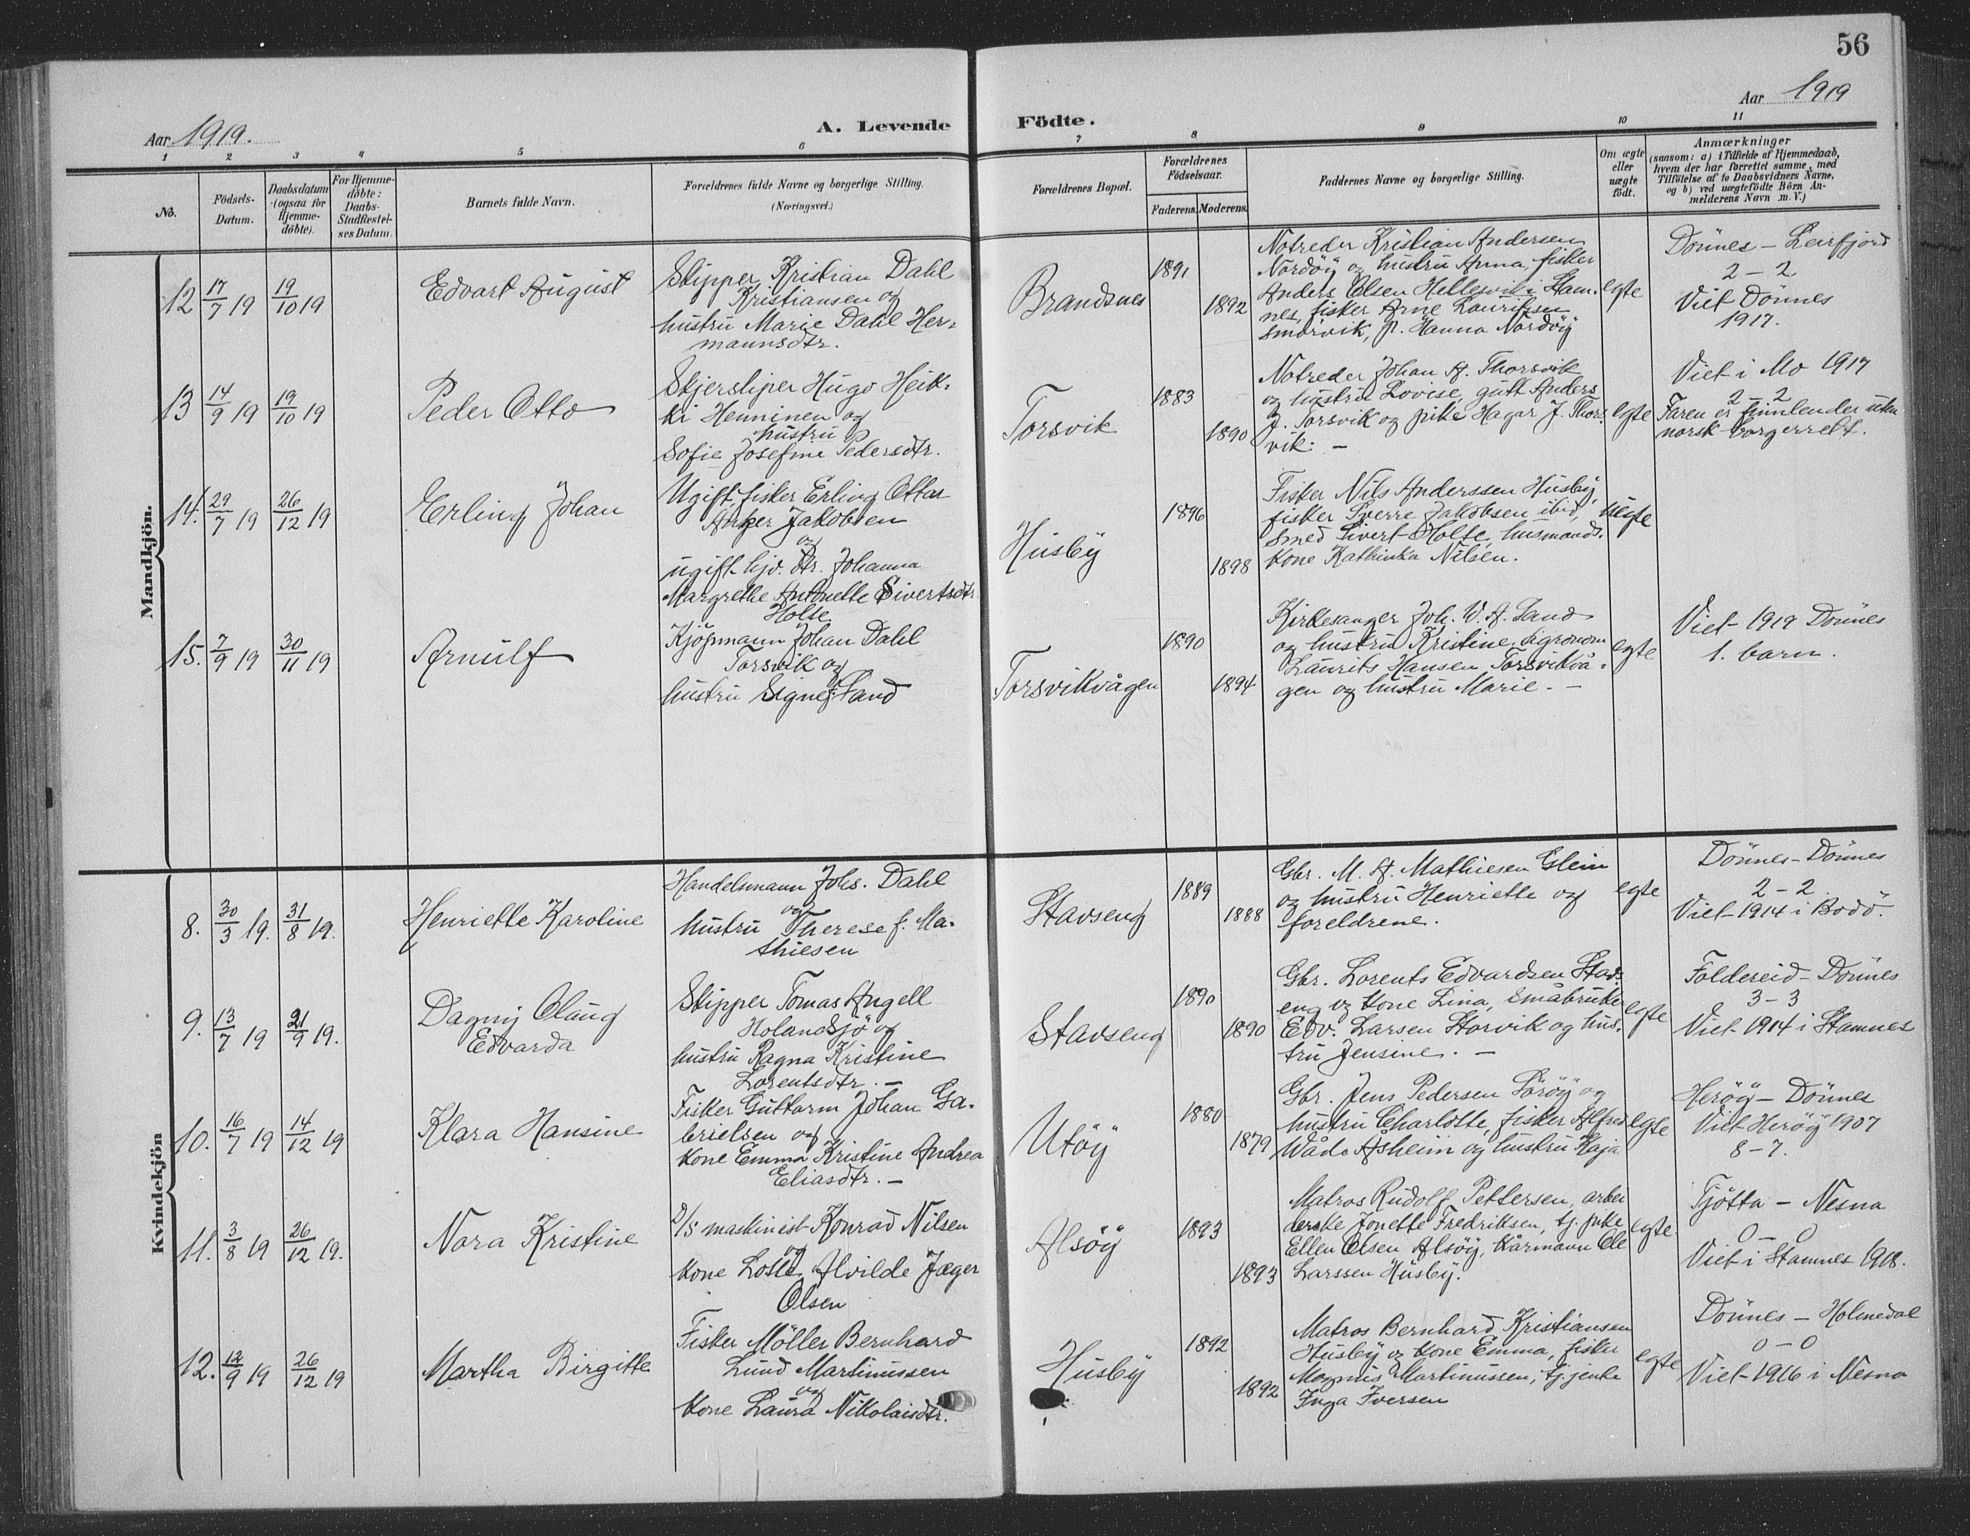 56
Aar 1919.
A. Levende
Födte.
Aar 1919
1 2 3 4 5 6 7 8 9 10 11
No.
Födsels-
Datum.
Daabsdatum
(ogsaa for
Hjemme-
döbte).
For Hjemme-
döbte:
Daabs-
Stadfæstel-
ses Datum.
Barnets fulde Navn.
Forældrenes fulde Navne og borgerlige Stilling.
(Næringsvei.)
Forældrenes Bopæl.
Forældrenes
Födselsaar.
Faderens. Moderens.
Faddernes Navne og borgerlige Stilling.
Om ægte
eller
uægte
födt.
Anmærkninger
(saasom: a) i Tilfælde af Hjemmedaab,
hvem der har forrettet samme, med
Tilföielse af to Daabsvidners Navne,
og b) ved uægtefödte Börn An-
melderens Navn m. V.)
Mandkjön.
12 17/7 19 19/10 19
Edvart August
Skipper Kristian Dahl
Kristiansen og
hustru Marie Dahl Her-
mannsdtr.
Brandsnes
1891
1892
Notreder Kristian Andersen
Nordöy og hustru Anna, fisker
Anders Olsen Hellesvik i Stam-
nes, fisker Arne Lauritsen
Smörvik, p. Hanna Nordöy
egte
Dönnes - Leirfjord
2 - 2
Viet Dönnes
1917.
13 14/9 19 19/10 19
Peder Otto
Skjersliper Hugo Heik-
ki Henninen og
hustru
Sofie Josefine Pedersdtr.
Torsvik
1883
1890
Notreder Johan A. Thorsvik
og hustru Lovise, gutt Anders
J. Torsvik og pike Hagar J. Thors-
vik. -
egte
Viet i Mo 1917
2 - 2
Faren er finnlender uten
norsk borgerrett.
14. 29/7 19 26/12 19
Erling Johan
Ugift fisker Erling Ottar
Anker Jakobsen
og
ugift hjv. dtr. Johanna
Margrethe Antonette Sivertsdtr.
Holte
Husby
1896
1898
Fisker Nils Anderssen Husby,
fisker Sverre Jakobsen ibid,
Smed Sivert Holte, husmands-
kone Kathinka Nilsen.
uegte
15. 7/9 19 30/11 19
Arnulf
Kjöpmann Johan Dahl
Torsvik og
hustru Signe f. Sand
Torsvikvågen
1890
1894
Kirkesanger Joh. W. A. Sand
og hustru Kristine, agronom
Laurits Hansen Torsvikvå-
gen og hustru Marie. -
egte
Viet 1919 Dönnes
1. barn.
Kvindekjön
8. 30/3 19. 31/8 19.
Henriette Karoline
Handelsmann Johs. Dahl
og
hustru Therese f. Ma-
thiesen
Stavseng
1889
1888
Gbr. M. A. Mathiesen Glein
og hustru Henriette og
foreldrene.
egte
Dönnes - Dönnes
2 - 2.
Viet 1914 i Bodö.
9. 13/7 19 21/9 19.
Dagny Olaug
Edvarda
Skipper Tomas Angell
Holandsjö og
hustru Ragna Kristine
Lorentsdtr. -
Stavseng
1890
1890
Gbr. Lorents Edvardsen Stav-
eng og kone Lina, Småbruker
Edv. Larsen Storvik og hus-
tru Jensine. -
egte
Foldereid - Dönnes
3 - 3
Viet 1914 i Stamnes
10. 16/7 19 14/12 19
Klara Hansine
Fisker Guttorm Johan Ga-
brielsen og
kone Emma Kristine Andrea
Eliasdtr. -
Utöy
1880
1879
Gbr. Jens Pedersen Söröy og
hustru Charlotte, fisker Alfred
Wåde Asheim og hustru Kaja
egte
Heröy - Dönnes
Viet Heröy 1907
8 - 7.
11. 3/8 19 26/12 19.
Nora Kristine
D/S maskinist Konrad Nilsen
og
kone Lotte Alvilde Jæger
Olsen
Alsöy
1893
1893
Matros Rudolf Pettersen, arbei
derske Jonette Fredriksen, tj. pike
Ellen Olsen Alsöy, kårmann Ole
Larssen Husby.
egte
Tjötta - Nesna
0 - 0
Viet i Stamnes 1918.
12. 12/9 19 26/12 19
Martha Birgitte
Fisker Möller Bernhard
Lund Martinussen
og
kone Laura Nikolaisdtr.
Husby
1892
1892
Matros Bernhard Kristiansen
Husby og kone Emma, fisker
Magnus Martinussen, tj.jente
Inga Iversen
egte
Dönnes - Holmedal
0 - 0
Viet 1916 i Nesna